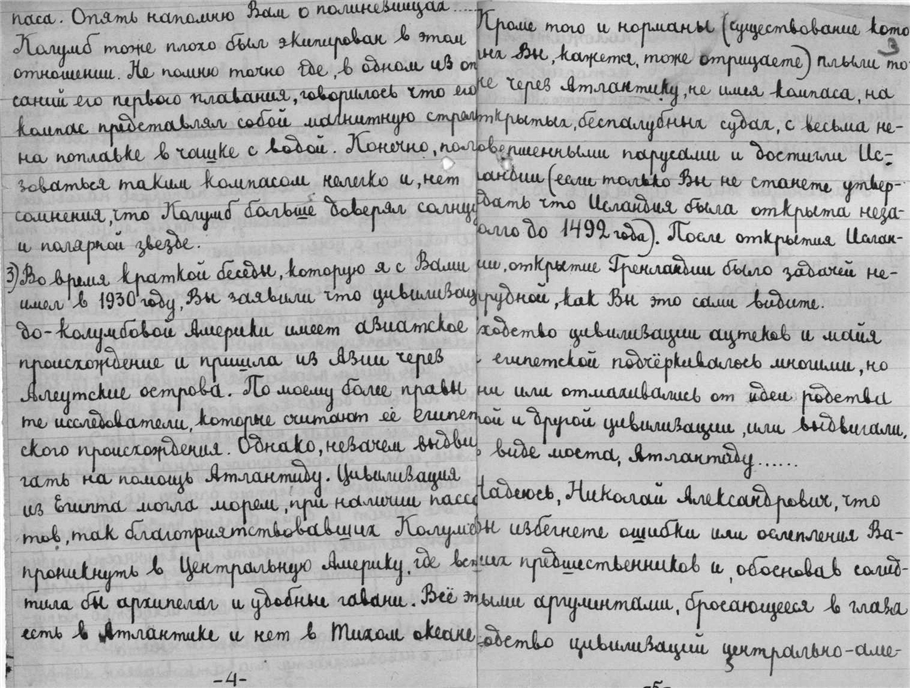 паса. Опять напомню Вам о полиневийцах.....
Колумб тоже плохо был экипирован в этом
отношении. Не помню точно где, в одном из оп
саний его первого плавания, говорилось что его
компас представлял собой магнитную стрел
на поплавке в чашке с водой. Конечно, пол
зоваться таким компасом нелегко и, нет
сомнения, что Колумб больше доверял солнцу
и полярной звезде.
3) Во время краткой беседы, которую я с Вами
имел в 1930 году, Вы заявили что цивилизац
до-колумбовой Америки имеет азиатское
происхождение и пришла из Азии через
Алеутские острова. По моему более правы
те исследователи, которые считают её египет
ского происхождения. Однако, незачем выдви
гать на помощь Атлантиду. Цивилизация
из Египта могла морем, при наличии пасса
тов, так благоприятствовавших Колумб
проникнуть в Центральную Америку, где вст
тила бы архипелаг и удобные гавани. Всё эт
есть в Атлантике и нет в Тихом океане
-4-
Кроме того и норманы (существование кото
3
ых Вы, кажется, тоже отрицаете) плыли то
же через Атлантику, не имея компаса, на
ткрытых, беспалубных судах, с весьма не-
овершенными парусами и достигли Ис-
ландии (если только Вы не станете утвер-
дать что Исландия была открыта неза-
олго до 1492 года). После открытия Ислан-
ии, открытие Гренландии было задачей не-
рудной, как Вы это сами видите.
ходство цивилизации ацтеков и майя
с египетской подчёркивалось многими, но
ни или отмахивались от идеи родства
ой и другой цивилизации, или выдвигали,
в виде моста, Атлантиду......
Надеюсь, Николай Александрович, что
ы избегнете ошибки или ослепления Ва-
ших предшественников и, обосновав солид-
ными аргументами, бросающееся в глаза
ходство цивилизаций центрально-аме-
-5-